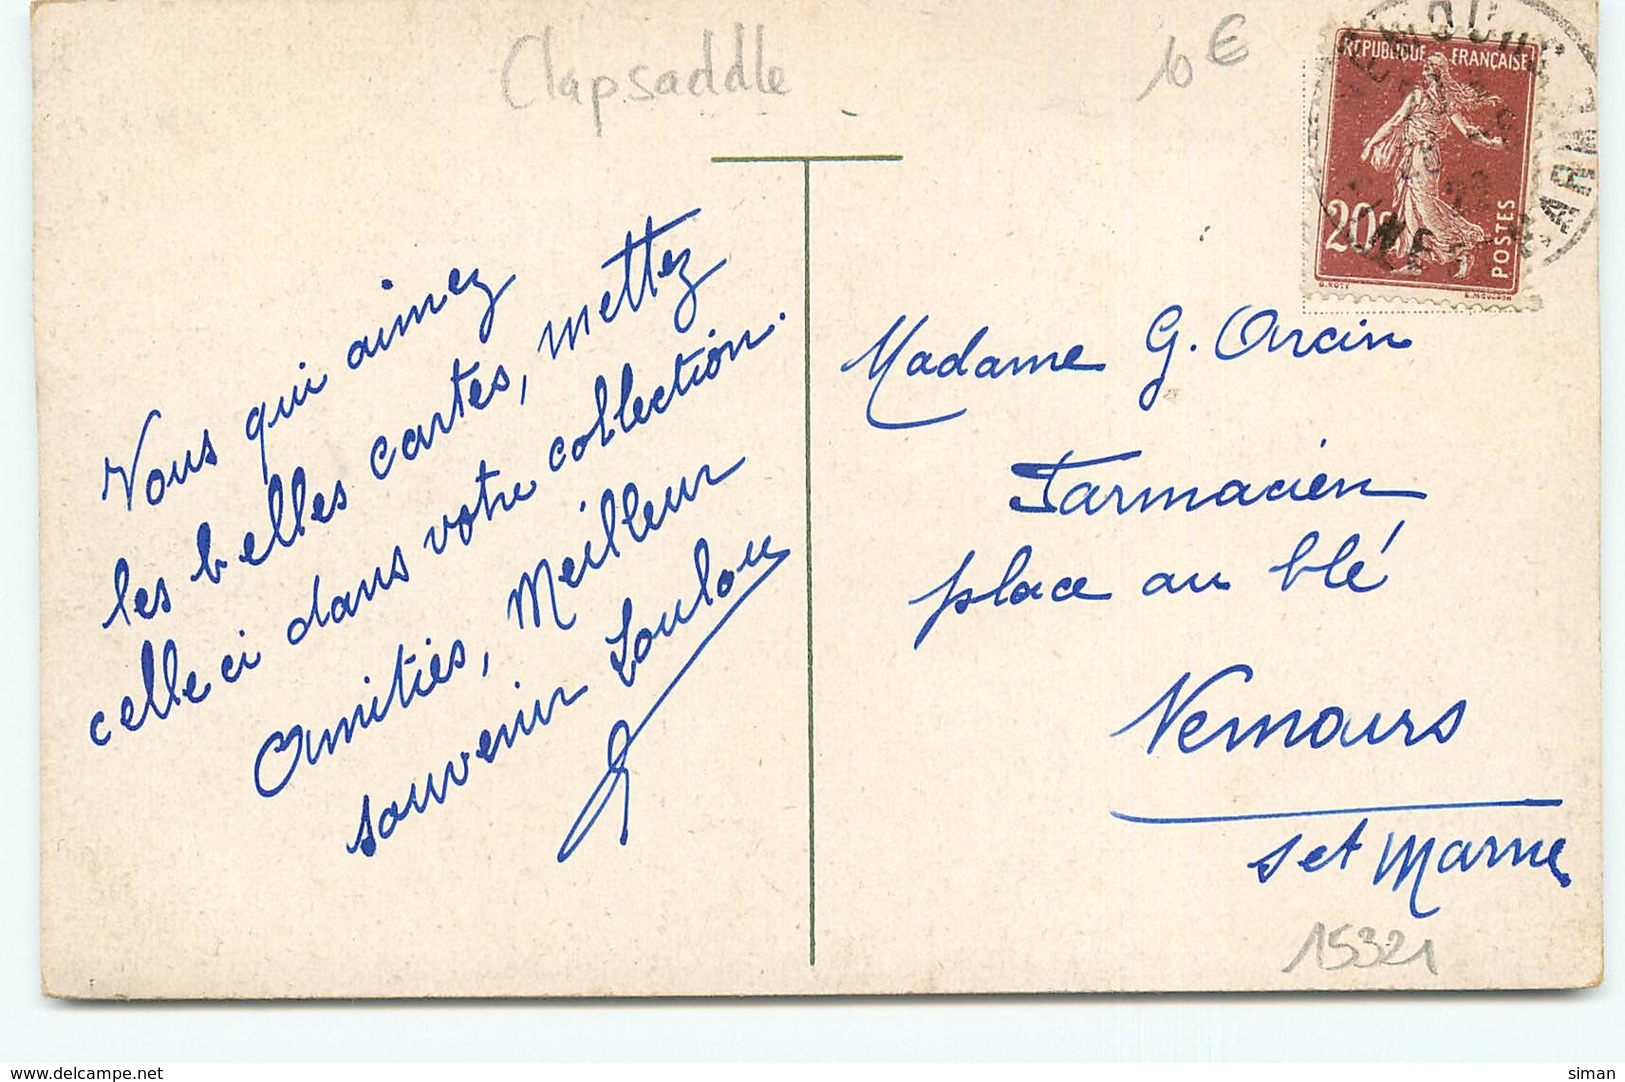 Clapsaddle
10 €
RÉPUBLIQUE FRANÇAISE
20c
POSTES
O. ROTY
E. MOUCHON
Vous qui aimez
les belles cartes, mettez
celle ci dans votre collection.
Amitiés, Meilleur
souvenir Loulou
Madame G. Orcin
Farmacien
place au blé
Nemours
S et Marne
15321
www.delcampe.net
siman